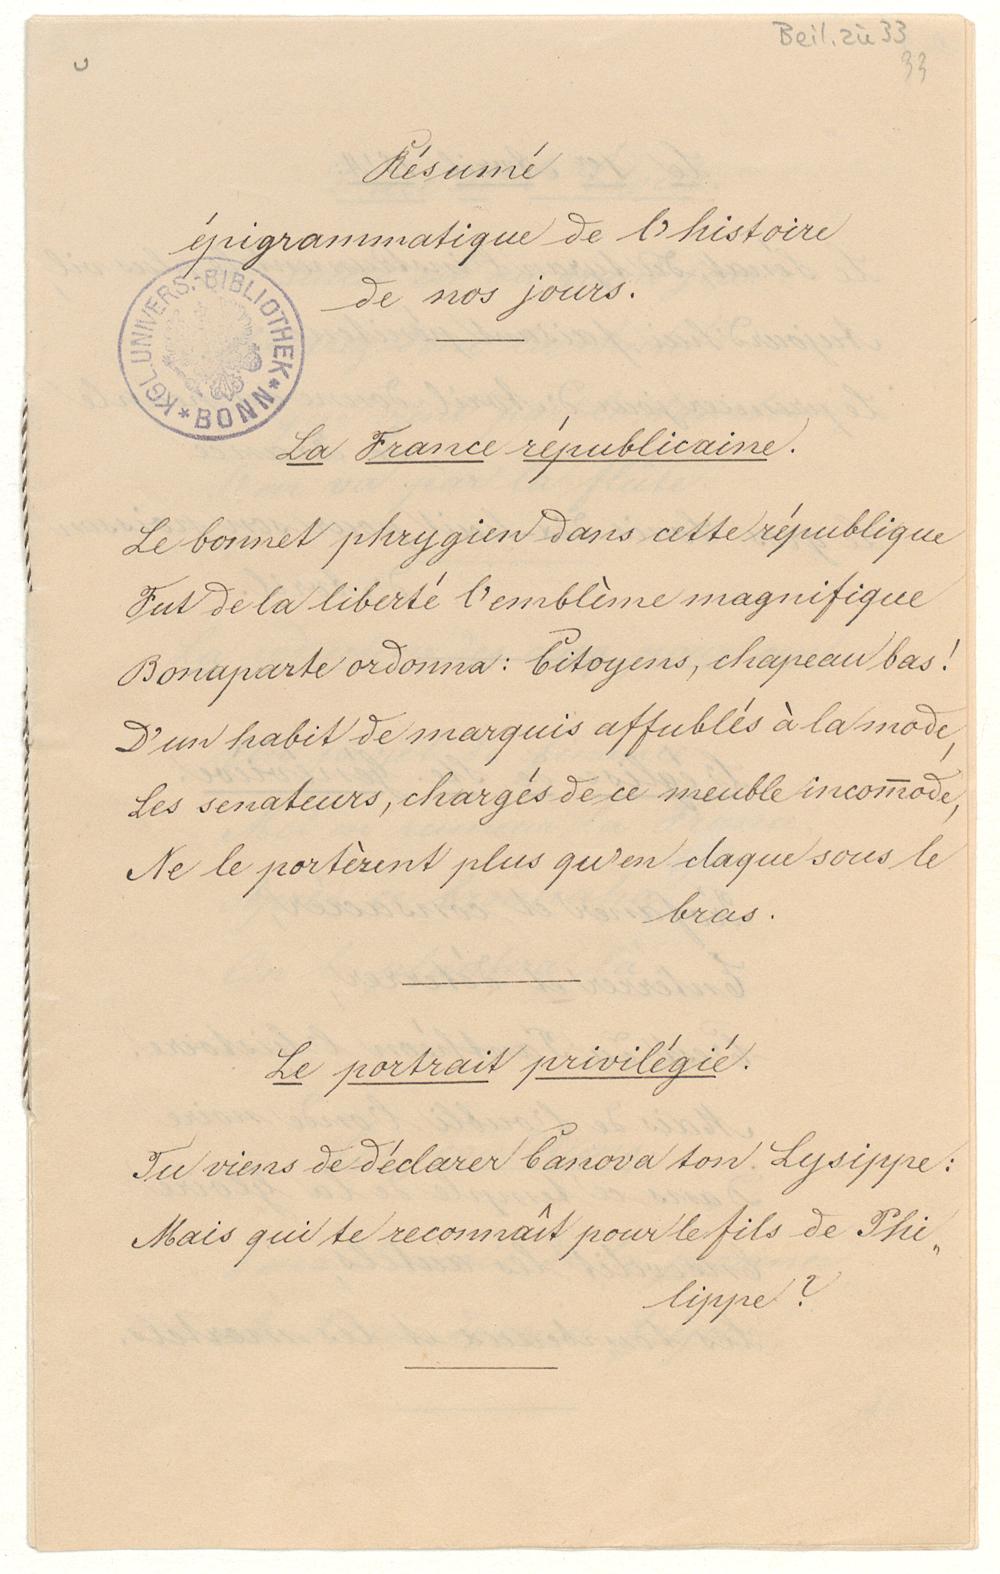 Beil. zu 33
33
Résumé
épigrammatique de l'histoire
de nos jours.
KGL. UNIVERS.-BIBLIOTHEK
* BONN *
La France républicaine.
Le bonnet phrygien dans cette république
Fut de la liberté l'emblème magnifique
Bonaparte ordonna: Citoyens, chapeau bas!
D'un habit de marquis affublés à la mode,
Les senateurs, chargés de ce meuble incom̅ode,
Ne le portèrent plus qu'en claque sous le
bras.
Le portrait privilégié.
Tu viens de déclarer Canova ton Lysippe:
Mais qui te reconnaît pour le fils de Phi„
lippe?